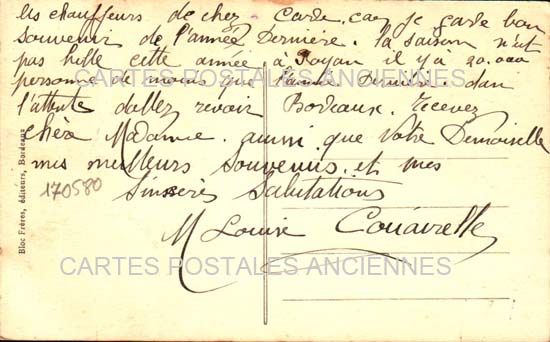 les chauffeurs de chez Carde. car je garde bon
souvenir de l'année Dernière. la saison n'est
pas belle cette année à Royan il y a 20.000
personne de moins que l'année Dernière. dan
l'attente dallez revoir Bordeaux. recevez
chère Madame. ainsi que Votre Demoiselle
mes meilleurs souvenirs. et mes
sinsères salutations
170580
M Louise
CARTES POSTALES ANCIENNES
CARTES POSTALES ANCIENNES
Bloc Frères, éditeurs, Bordeaux